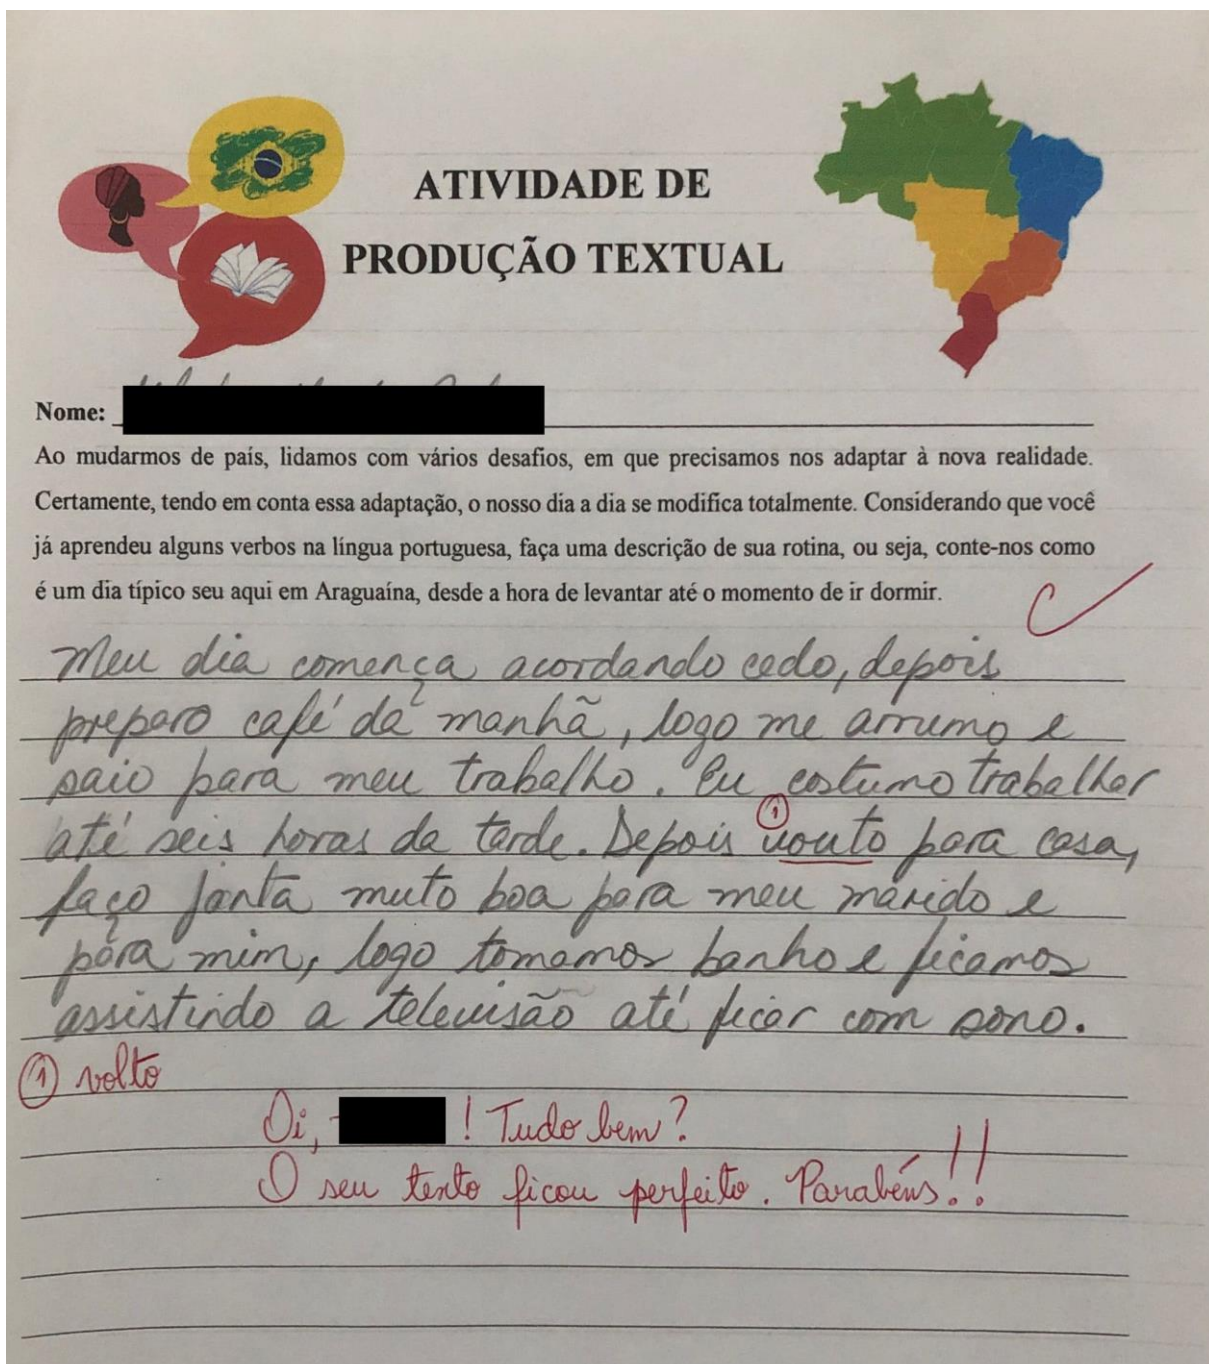 ATIVIDADE DE
PRODUÇÃO TEXTUAL
Nome:
Ao mudarmos de país, lidamos com vários desafios, em que precisamos nos adaptar à nova realidade.
Certamente, tendo em conta essa adaptação, o nosso dia a dia se modifica totalmente. Considerando que você
já aprendeu alguns verbos na língua portuguesa, faça uma descrição de sua rotina, ou seja, conte-nos como
é um dia típico seu aqui em Araguaína, desde a hora de levantar até o momento de ir dormir.
Meu dia comença acordando cedo, depois
preparo café da manhã, logo me arrumo e
saio para meu trabalho. Eu costumo trabalhar
1
até seis horas da tarde. Depois vouto para casa,
faço janta muto boa para meu marido e
para mim, logo tomamos banho e ficamos
assistindo a televisão até ficar com sono.
1 volto
Oi, ! Tudo bem?
O seu texto ficou perfeito. Parabéns!!